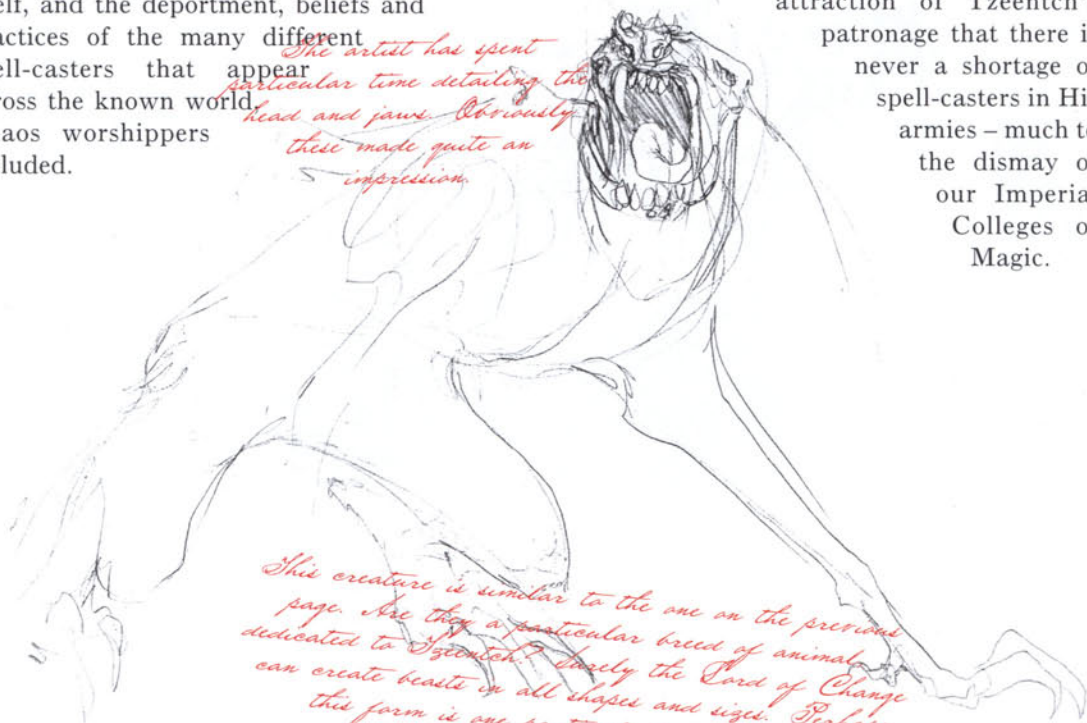 elf, and the deportment, beliefs and
actices of the many different
ell-casters that appear
ross the known world,
aos worshippers
luded.
The artist has spent
particular time detailing the
head and jaws. Obviously
these made quite an
impression.
attraction of Tzeentch'
patronage that there i
never a shortage o
spell-casters in Hi
armies – much to
the dismay o
our Imperia
Colleges o
Magic.
This creature is similar to the one on the previous
page. Are they a particular breed of animal
dedicated to Tzeentch? Surely the Lord of Change
can create beasts in all shapes and sizes.
this form is one